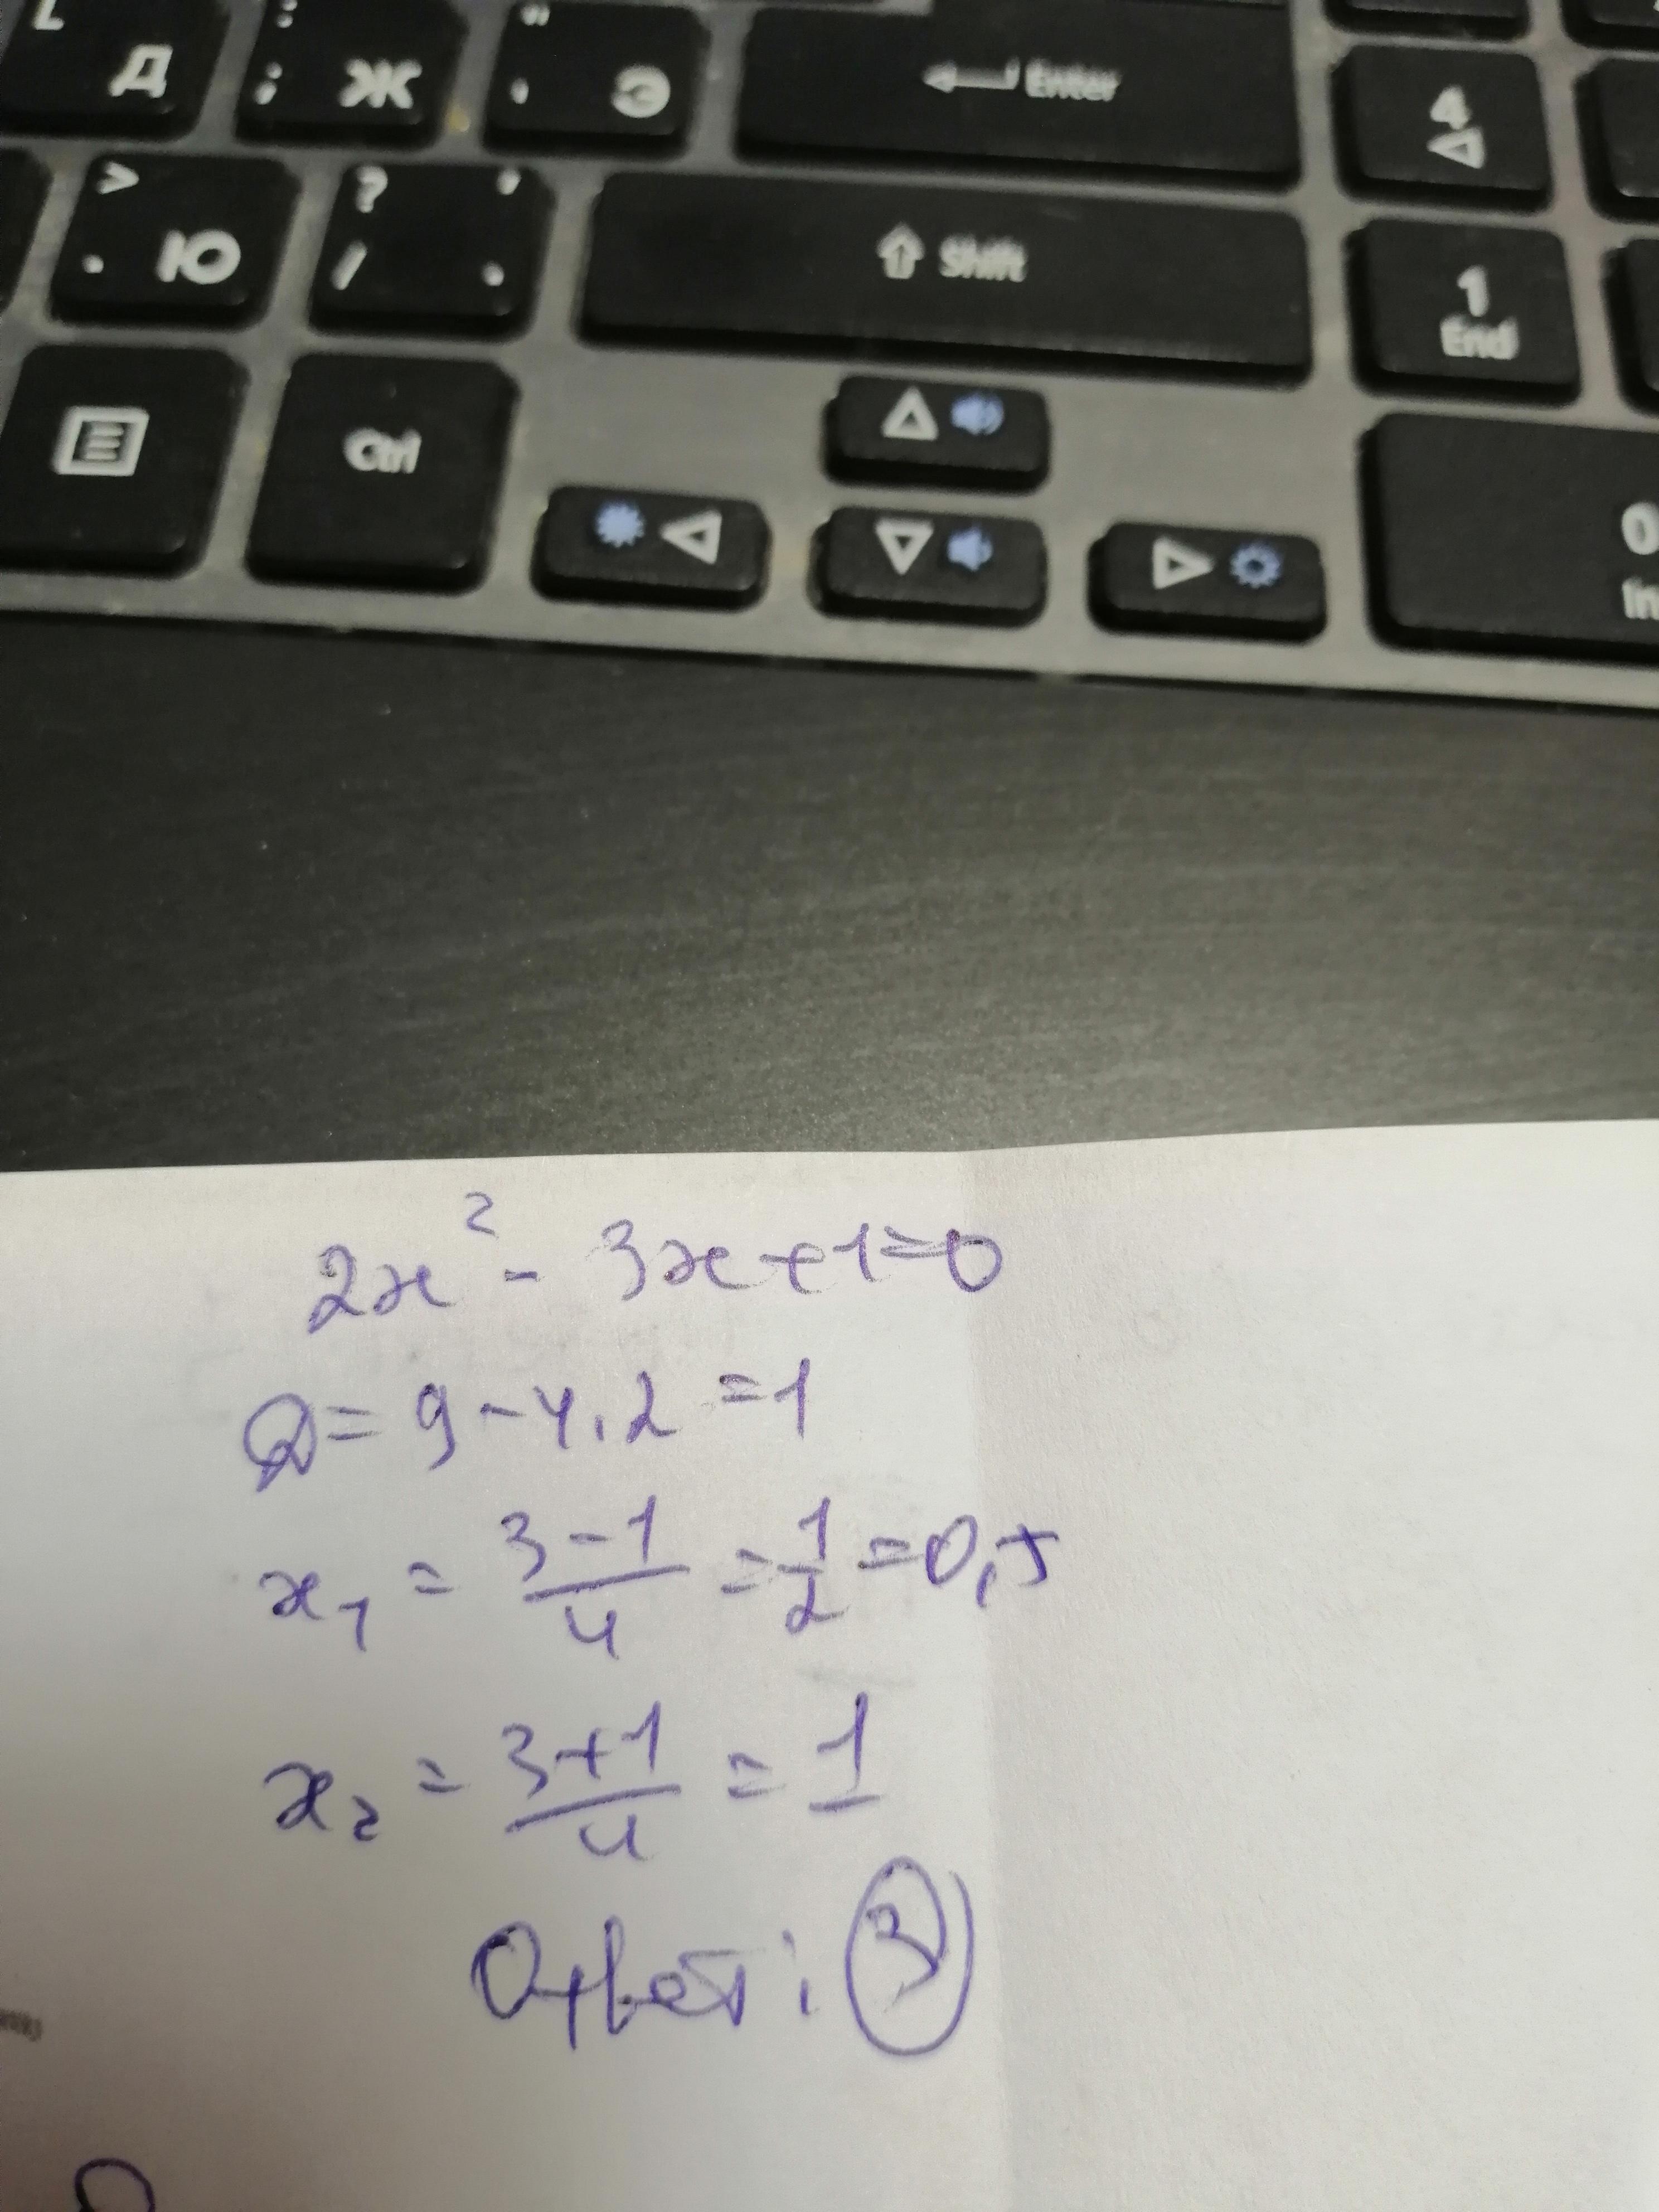 L Д : ; Ж " ' Э Enter 4
> . Ю ? / , . Shift 1 End
Ctrl 0
2x² - 3x + 1 = 0
D = 9 - 4 . 2 = 1
x₁ = (3 - 1)/4 = 1/2 = 0,5
x₂ = (3 + 1)/4 = 1
Ответ: 3